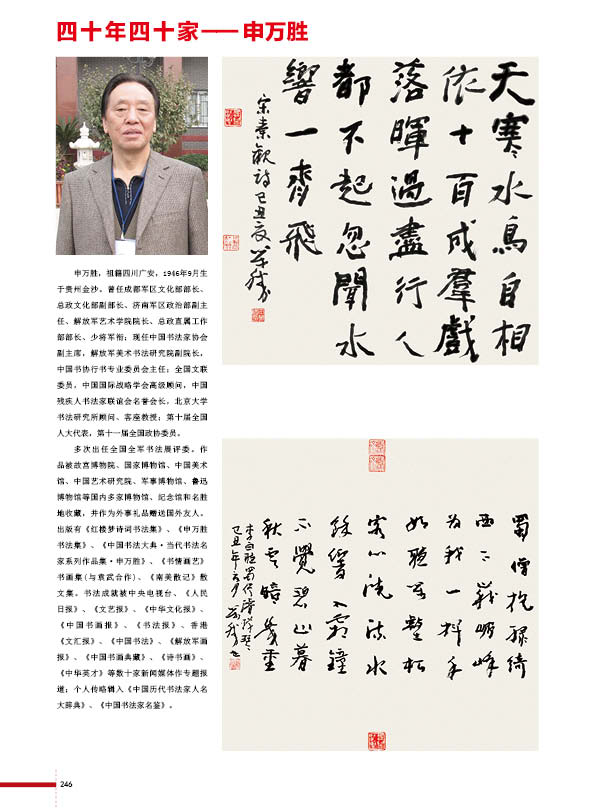 四十年四十家——申万胜
申万胜，祖籍四川广安，1946年9月生
于贵州金沙。曾任成都军区文化部部长、
总政文化部副部长、济南军区政治部副主
任、解放军艺术学院院长、总政直属工作
部部长、少将军衔；现任中国书法家协会
副主席，解放军美术书法研究院副院长，
中国书协行书专业委员会主任；全国文联
委员，中国国际战略学会高级顾问，中国
残疾人书法家联谊会名誉会长，北京大学
书法研究所顾问、客座教授；第十届全国
人大代表，第十一届全国政协委员。
多次出任全国全军书法展评委。作
品被故宫博物院、国家博物馆、中国美术
馆、中国艺术研究院、军事博物馆、鲁迅
博物馆等国内多家博物馆、纪念馆和名胜
地收藏，并作为外事礼品赠送国外友人。
出版有《红楼梦诗词书法集》、《申万胜
书法集》、《中国书法大典·当代书法名
家系列作品集·申万胜》、《书情画艺》
书画集(与袁武合作)、《南美散记》散
文集。书法成就被中央电视台、《人民
日报》、《文艺报》、《中华文化报》、
《中国书画报》、《书法报》、香港
《文汇报》、《中国书法》、《解放军画
报》、《中国书画典藏》、《诗书画》、
《中华英才》等数十家新闻媒体作专题报
道；个人传略辑入《中国历代书法家人名
大辞典》、《中国书法家名鉴》。
天寒水鳥自相
依十百成羣戲
落暉過盡行人
都不起忽聞水
響一齊飛
宋秦觀詩己丑夏萬勝
蜀僧抱綠綺
西下峨嵋峰
为我一挥手
如聽萬壑松
客心洗流水
餘響入霜鐘
不覺碧山暮
秋雲暗幾重
246